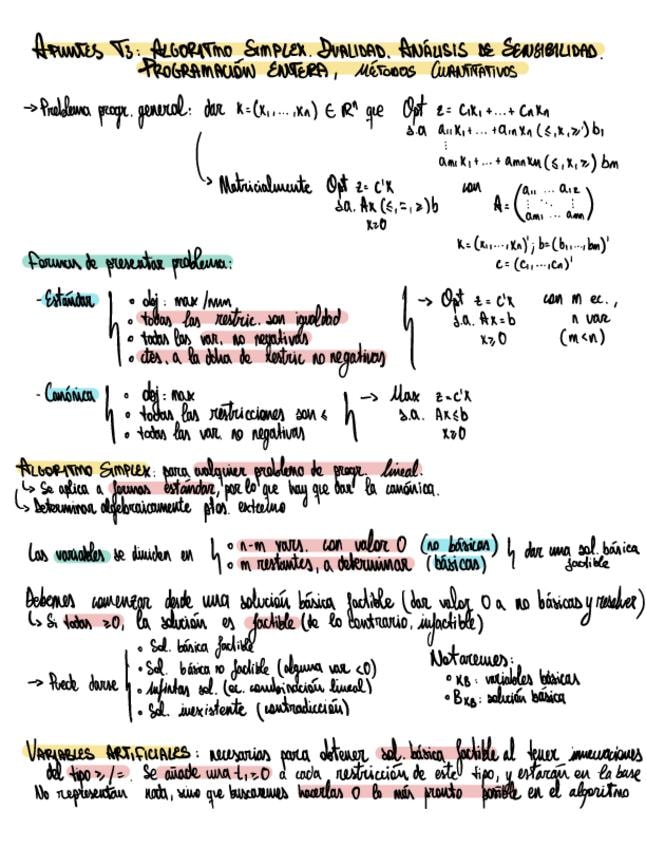 APUNTES T3: ALGORITMO SIMPLEX. DUALIDAD. ANÁLISIS DE SENSIBILIDAD.
PROGRAMACIÓN ENTERA, MÉTODOS CUANTITATIVOS
→ Problema progr. general: dar x=(x₁,...,xₙ) ∈ ℝⁿ que Opt z= c₁x₁+...+cₙxₙ
s.a a₁₁x₁+...+a₁ₙxₙ (≤,=,≥) b₁
⋮
aₘ₁x₁+...+aₘₙxₙ (≤,=,≥) bₘ
↳ Matricialmente Opt z= c'x
s.a. Ax (≤,=,≥) b
x≥0
con A= (a₁₁ ... a₁₂
⋮ ⋱ ⋮
aₘ₁ ... aₘₙ)
x=(x₁,...,xₙ)'; b=(b₁,...,bₘ)'
c=(c₁,...,cₙ)'
Formas de presentar problema:
- Estándar
• obj: max/min
• todas las restric. son igualdad
• todas las var. no negativas
• ctes. a la dcha de restric no negativas
→ Opt z=c'x con m ec.,
s.a. Ax=b n var
x≥0 (m<n)
- Canónica
• obj: max
• todas las restricciones son ≤
• todas las var. no negativas
→ Max z=c'x
s.a. Ax≤b
x≥0
ALGORITMO SIMPLEX: para cualquier problema de progr. lineal.
↳ Se aplica a formas estándar, por lo que hay que dar la canónica.
↳ Determinar algebraicamente ptos. extremo
Las variables se dividen en
• n-m vars. con valor 0 (no básicas)
• m restantes, a determinar (básicas)
dar una sol. básica
factible
Debemos comenzar desde una solución básica factible (dar valor 0 a no básicas y resolver)
↳ Si todas ≥0, la solución es factible (de lo contrario, infactible)
→ Puede darse
• Sol. básica factible
• Sol. básica no factible (alguna var <0)
• Infinitas sol. (ec. combinación lineal)
• Sol. inexistente (contradicción)
Notaremos:
• x_B: variables básicas
• B_XB: solución básica
VARIABLES ARTIFICIALES: necesarias para obtener sol. básica factible al tener inecuaciones
del tipo ≥/=. Se añade una t₁≥0 a cada restricción de este tipo, y estarán en la base
No representan nada, sino que buscaremos hacerlas 0 lo más pronto posible en el algoritmo